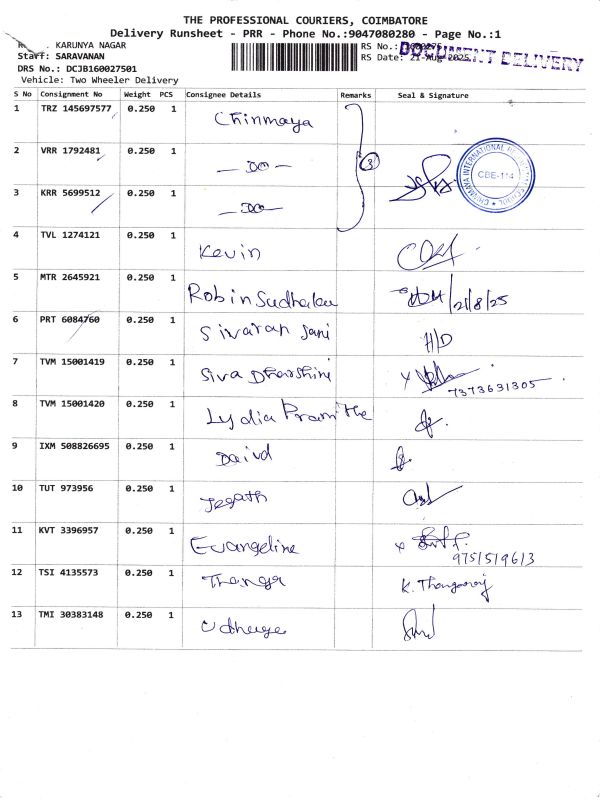 THE PROFESSIONAL COURIERS, COIMBATORE
Delivery Runsheet - PRR - Phone No.:9047080280 - Page No.:1
KARUNYA NAGAR
RS No.:
DOCUMENT DELIVERY
Staff: SARAVANAN
RS Date: 21-Aug-2025
DRS No.: DCJB160027501
Vehicle: Two Wheeler Delivery
S No Consignment No Weight PCS Consignee Details Remarks Seal & Signature
1 TRZ 145697577 0.250 1 Chinmaya
2 VRR 1792481 0.250 1 — Do — 3
CBE-114
3 KRR 5699512 0.250 1 — Do —
4 TVL 1274121 0.250 1 Kevin
5 MTR 2645921 0.250 1 Robin Sudhakar 21/8/25
6 PRT 6084760 0.250 1 Sivaran Jani H/D
7 TVM 15001419 0.250 1 Siva Dharshini x
7373631305
8 TVM 15001420 0.250 1 Lydia Pramithe
9 IXM 508826695 0.250 1 Daivd
10 TUT 973956 0.250 1 Jegath
11 KVT 3396957 0.250 1 Evangeline x
9751519613
12 TSI 4135573 0.250 1 Thanga K. Thangaraj
13 TMI 30383148 0.250 1 Udhaya